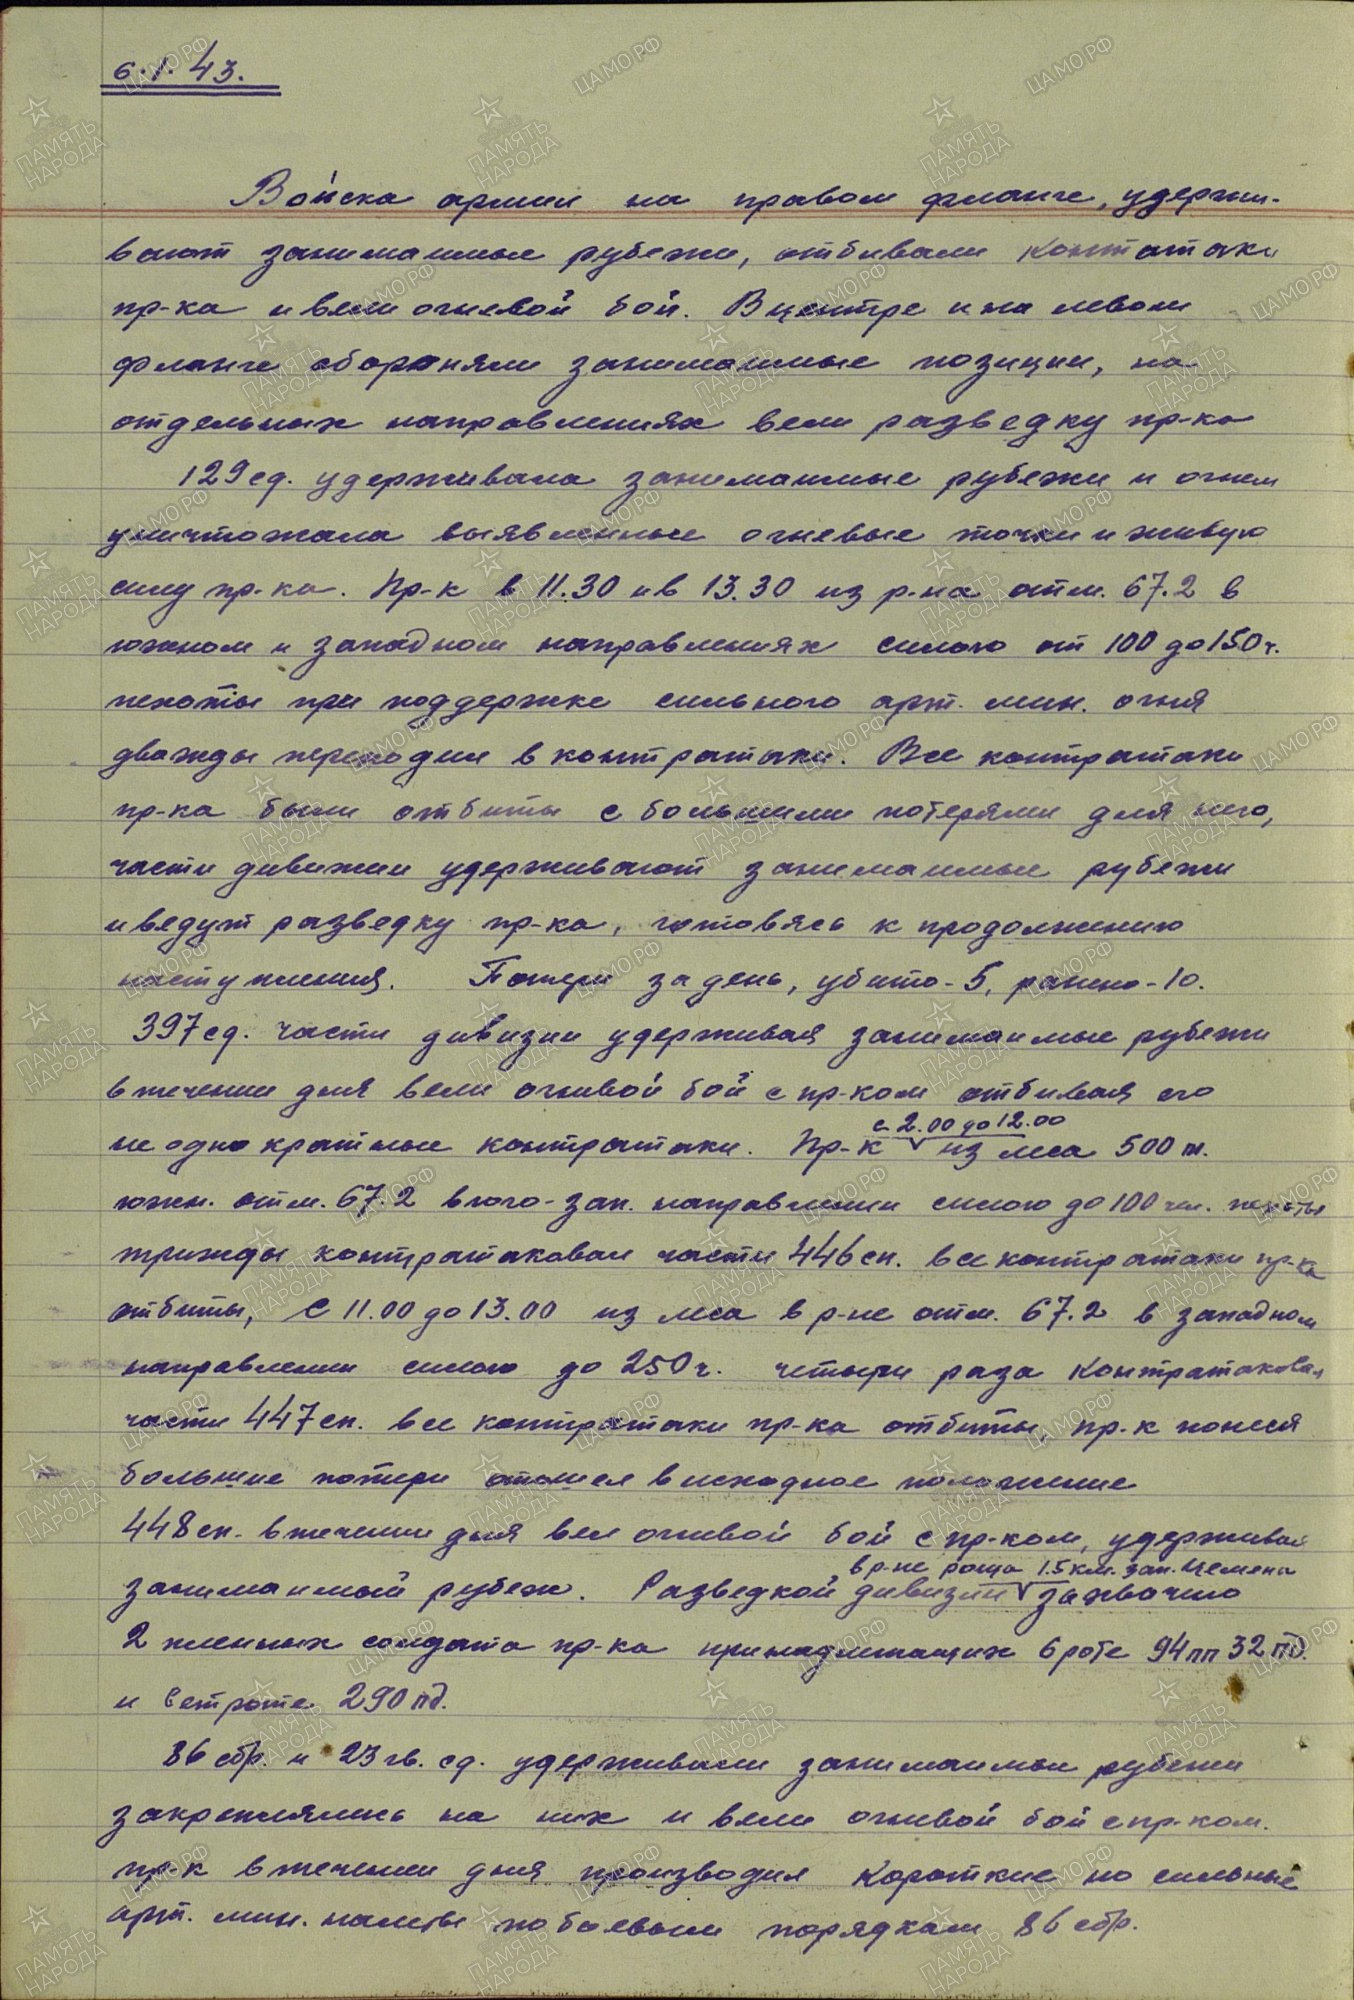 6.1.43.
Войска армии на правом фланге, удержи-
вают занимаемые рубежи, отбивали контатаки
пр-ка и вели огневой бой. В центре и на левом
фланге обороняли занимаемые позиции, на
отдельных направлениях вели разведку пр-ка
129 сд. удерживала занимаемые рубежи и огнем
уничтожала выявленные огневые точки и живую
силу пр-ка. Пр-к в 11.30 и в 13.30 из р-на отм. 67.2 в
южном и западном направлениях силою от 100 до 150 ч.
пехоты при поддержке сильного арт. мин. огня
дважды переходил в контратаки. Все контратаки
пр-ка были отбиты с большими потерями для него,
части дивизии удерживают занимаемые рубежи
и ведут разведку пр-ка, готовясь к продолжению
наступления. Потери за день, убито-5, ранено-10.
397 сд. части дивизии удерживая занимаемые рубежи
в течении дня вели огневой бой с пр-ком отбивая его
неоднократные контратаки. Пр-к с 2.00 до 12.00 из леса 500 м.
южн. отм. 67.2 в юго-зап. направлении силою до 100 чел. пехоты
трижды контратаковал части 446 сп. все контратаки пр-ка
отбиты, С 11.00 до 13.00 из леса в р-не отм. 67.2 в западном
направлении силою до 250 ч. четыре раза контратаковал
части 447 сп. все контратаки пр-ка отбиты, пр-к понеся
большие потери отошел в исходное положение
448 сп. в течении дня вел огневой бой с пр-ком, удерживая
занимаемый рубеж. Разведкой дивизии в р-не роща 1.5 км. зап. Цемена захвачено
2 пленных солдата пр-ка принадлежащих 6 роте 94 пп 32 пд.
и ветроте 290 пд.
86 сбр. и 23 гв. сд. удерживали занимаемые рубежи
закреплялись на них и вели огневой бой с пр-ком.
пр-к в течении дня производил короткие но сильные
арт. мин. налеты по боевым порядкам 86 сбр.
ПАМЯТЬ НАРОДА
ЦАМО РФ